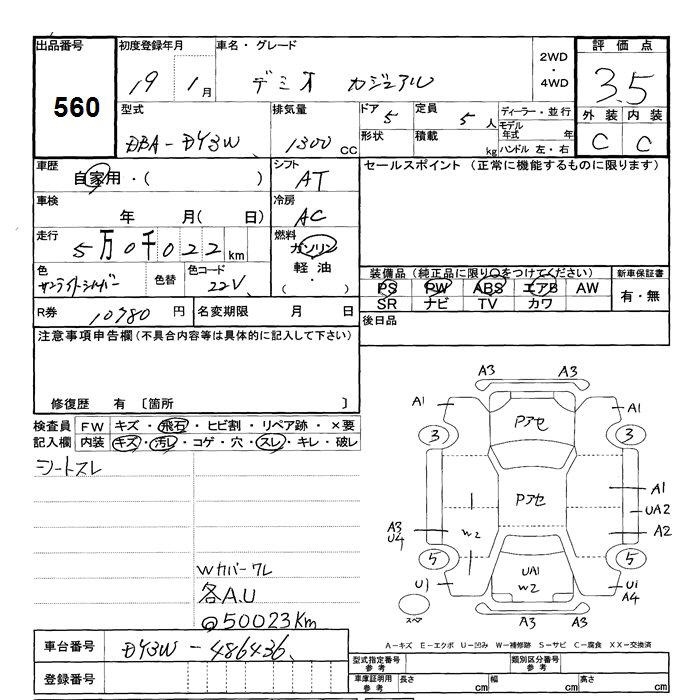 出品番号
560
初度登録年月
19 1月
車名・グレード
デミオ カジュアル
2WD
・
4WD
評価点
3.5
外装 内装
C C
型式
DBA-DY3W
排気量
1300 CC
ドア 5
形状
定員 5人
積載 kg
ディーラー・並行
モデル年式 年
ハンドル 左・右
車歴
自家用・( )
シフト
AT
セールスポイント (正常に機能するものに限ります)
車検
年 月( 日)
冷房
AC
走行
5万0千022km
燃料
ガソリン
軽油
・( )
色
サンライトシルバー
色替
色コード
22V
装備品(純正品に限り○をつけてください)
PS PW ABS エアB AW
SR ナビ TV カワ
新車保証書
有・無
R券 10780円
名変期限 月 日
後日品
注意事項申告欄(不具合内容等は具体的に記入して下さい)
修復歴 有 〔箇所 〕
検査員記入欄
FW キズ・飛石・ヒビ割・リペア跡・×要
内装 キズ・汚レ・コゲ・穴・スレ・キレ・破レ
シートスレ
Wカバーワレ
各A.U
@50023Km
A3 A3
A1 A1
3 3
Pアセ
Pアセ
A1
UA2
A3
U4
W2
A2
5 5
UA1
W2
U1
U1
A4
スペア
A3 A3
車台番号 DY3W-486436
登録番号
A-キズ E-エクボ U-凹み W-補修跡 S-サビ C-腐食 XX-交換済
型式指定番号参考
類別区分番号参考
車庫証明用参考 長さ cm 幅 cm 高さ cm